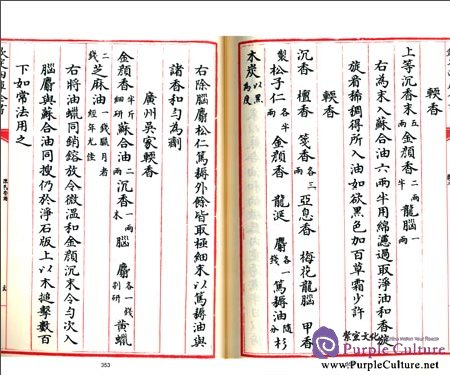 輭香
上等沉香末五兩金顔香二兩半龍腦一兩
右為末入蘇合油六兩半用綿濾過取淨油和香旋
旋看稀稠得所入油如欲黑色加百草霜少許
輭香
沉香 檀香 箋香各三兩亞息香 梅花龍腦 甲香
製松子仁各半兩金顔香 龍涎 麝各一錢篤耨油隨分杉
木炭以黑為度
右除腦麝松仁篤耨外餘皆取極細末以篤耨油與
諸香和勻為劑
廣州吳家輭香
金顔香半斤細研蘇合油二兩沉香一兩末腦 麝各一錢別研黄蠟
二錢芝麻油一錢臘月者經年尤佳
右將油蠟同銷鎔放令微溫和金顔沉末令勻次入
腦麝與蘇合油同搜仍於淨石版上以木搥擊數百
下如常法用之
陳氏香譜
353
紫室文化
Purple Culture
www.purpleculture.net